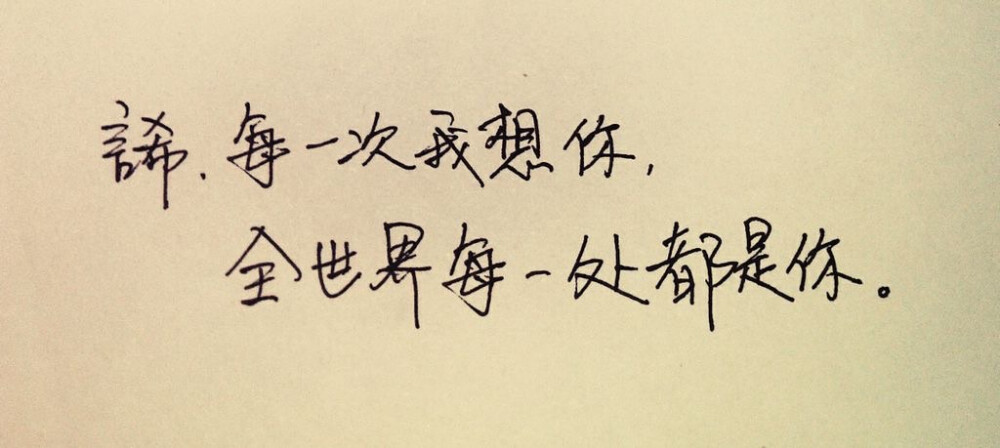 諦、每一次我想你,
全世界每一处都是你。